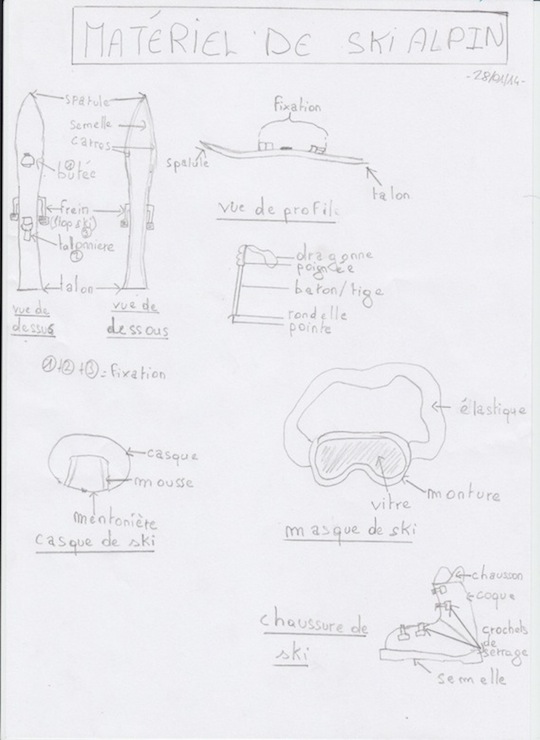 MATÉRIEL DE SKI ALPIN
spatule
semelle
carres
①
butée
frein
(stop ski)
③
talonnière
②
talon
vue de
dessus
vue de
dessous
①+②+③=fixation
fixation
spatule
talon
vue de profil
dragonne
poignée
baton/tige
rondelle
pointe
casque
mousse
mentonière
casque de ski
élastique
vitre
monture
masque de ski
chausson
coque
crochets
de
serrage
semelle
chaussure de
ski